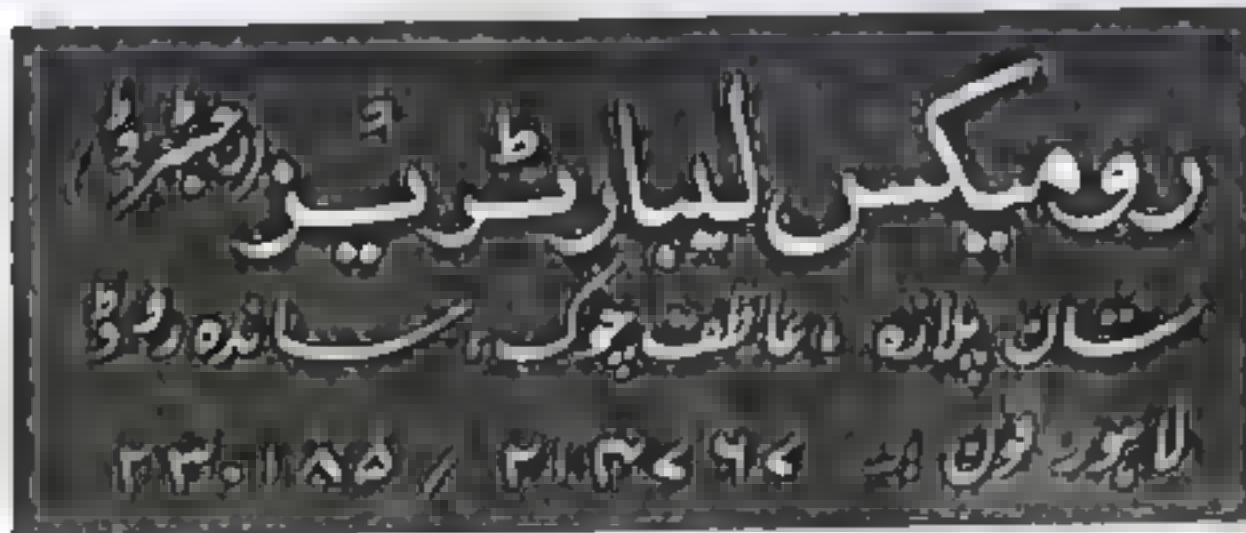 رومیکس لیبارٹریز (رجسٹرڈ)
ستان پلازہ، عاطف چوک، ساندہ روڈ
لاہور فون :۔